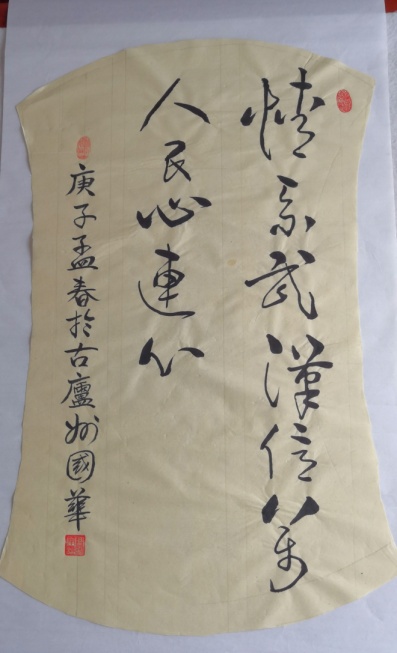 情系武漢億萬
人民心連心
庚子孟春於古廬州國華